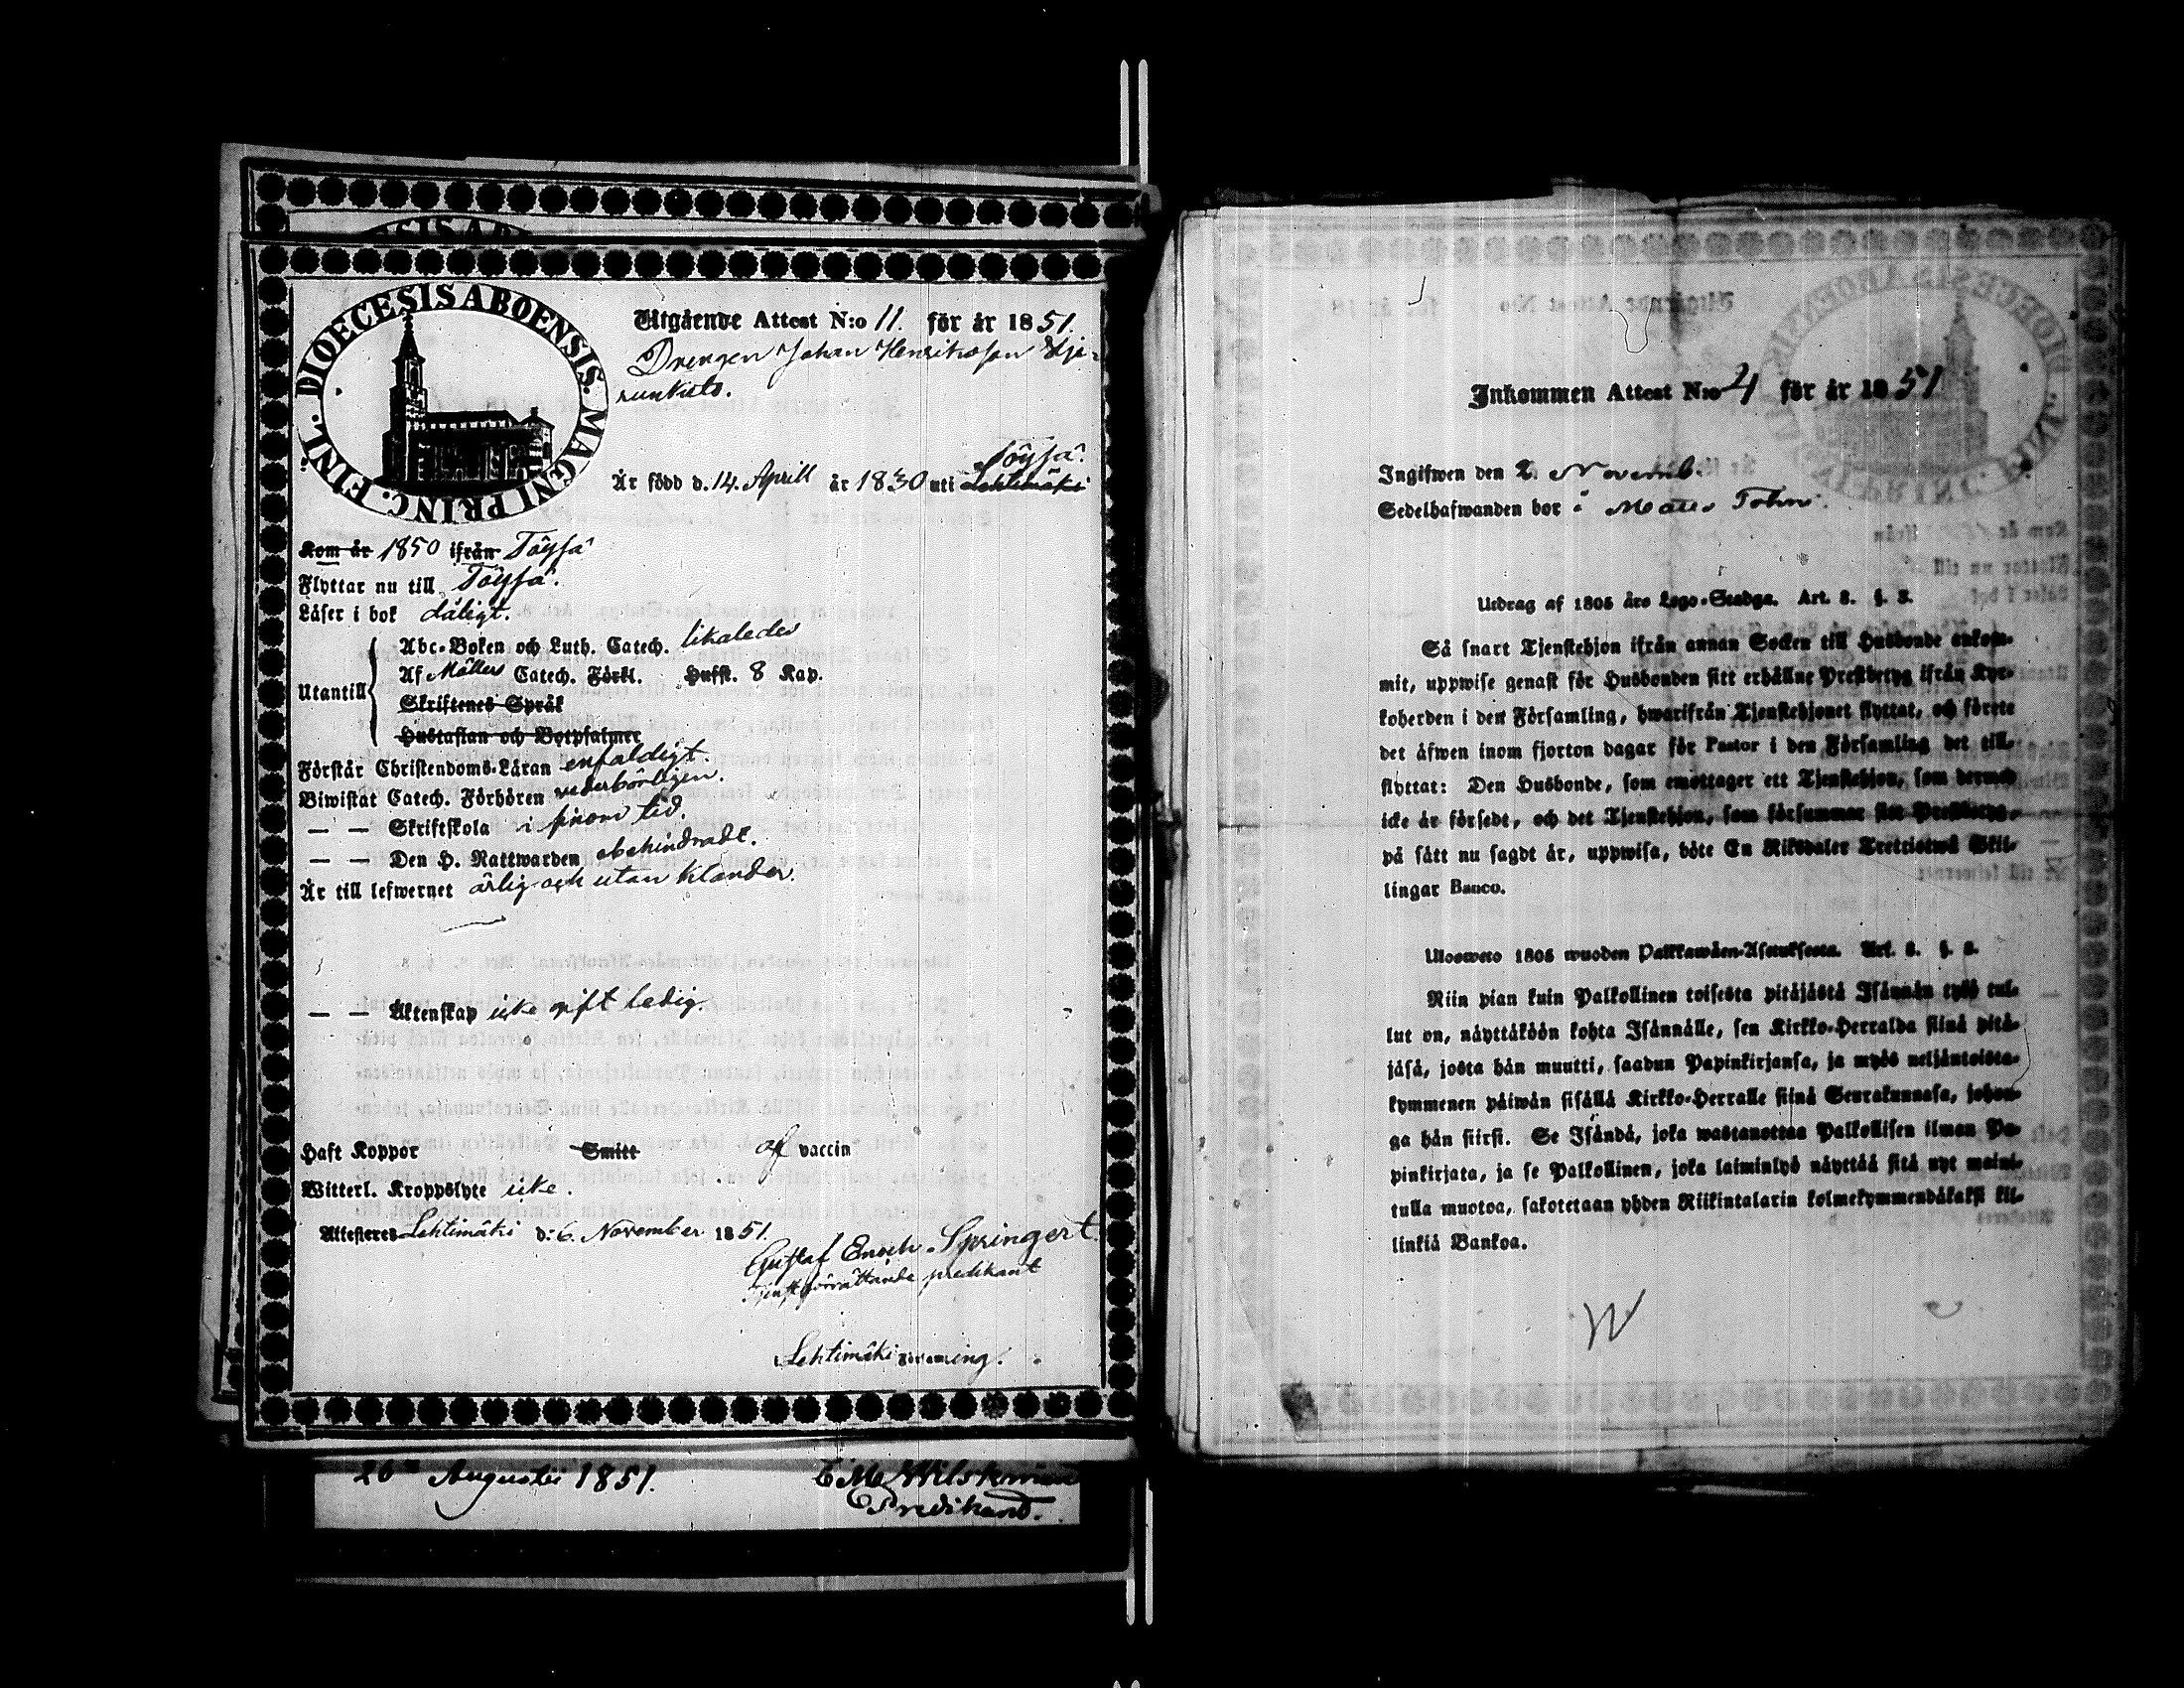 DIOECESIS ABOENSIS. MAGNI PRINC. FINL.
Utgående Attest N:o 11. för år 1851.
Drengen Johan Henriksson
Är född d. 14. Aprill år 1830 uti Lehtimäki Töysä.
Kom år 1850 ifrån Töysä
Flyttar nu till Töysä.
Läser i bok dåligt.
Abc-Boken och Luth. Catech. likaledes
Utantill Af Möllers Catech. Förkl. Hufst. 8 Kap.
Skriftenes Språk
Hustaflan och Botpsalmer
Förstår Christendoms-Läran enfaldigt.
Biwistat Catech. Förhören vederbörligen.
— — Skriftskola i sinom tid.
— — Den H. Nattwarden obehindradt.
Är till lefwernet ärlig och utan klander.
— — Äktenskap icke gift ledig.
Haft Koppor Smitt af vaccin
Witterl. Kroppslyte icke.
Attesteres Lehtimäki d: 6. November 1851.
Gustaf Enoch Springert.
Tjenstförrättande predikant
Lehtimäki
26 Augustii 1851.
Predikant.
Inkommen Attest N:o 4 för år 1851
Ingifwen den 2. Novemb.
Sedelhafwanden bor i
Utdrag af 1805 års Lego-Stadga. Art. 3. §. 3.
Så snart Tjenstehjon ifrån annan Socken till Husbonde ankom-
mit, uppwise genast för Husbonden sitt erhållne Prestbetyg ifrån Kyr-
koherden i den Församling, hwarifrån Tjenstehjonet flyttat, och förete
det äfwen inom fjorton dagar för Pastor i den Församling det till-
flyttat: Den Husbonde, som emottager ett Tjenstehjon, som dermed
icke är försedt, och det Tjenstehjon, som försummar sitt Prestbetyg,
på sätt nu sagdt är, uppwisa, böte En Riksdaler Trettiotwå Skil-
lingar Banco.
Uloswето 1805 wuoden Palkkawäen-Asetuksesta. Art. 3. §. 3.
Niin pian kuin Palkollinen toisesta pitäjästä Isännän työö tul-
lut on, näyttäköön kohta Isännälle, sen Kirkko-Herralda siinä pitä-
jäsä, josta hän muutti, saadun Papinkirjansa, ja myös neljäntoista-
kymmenen päiwän sisällä Kirkko-Herralle siinä Seurakunnasa, johon-
ga hän siirsi. Se Isändä, joka wastanottaa Palkollisen ilman Pa-
pinkirjata, ja se Palkollinen, joka laiminlyö näyttää sitä nyt maini-
tulla muotoa, sakotetaan yhden Riikintalarin kolmekymmendäkaksi kil-
linkiä Bankoa.